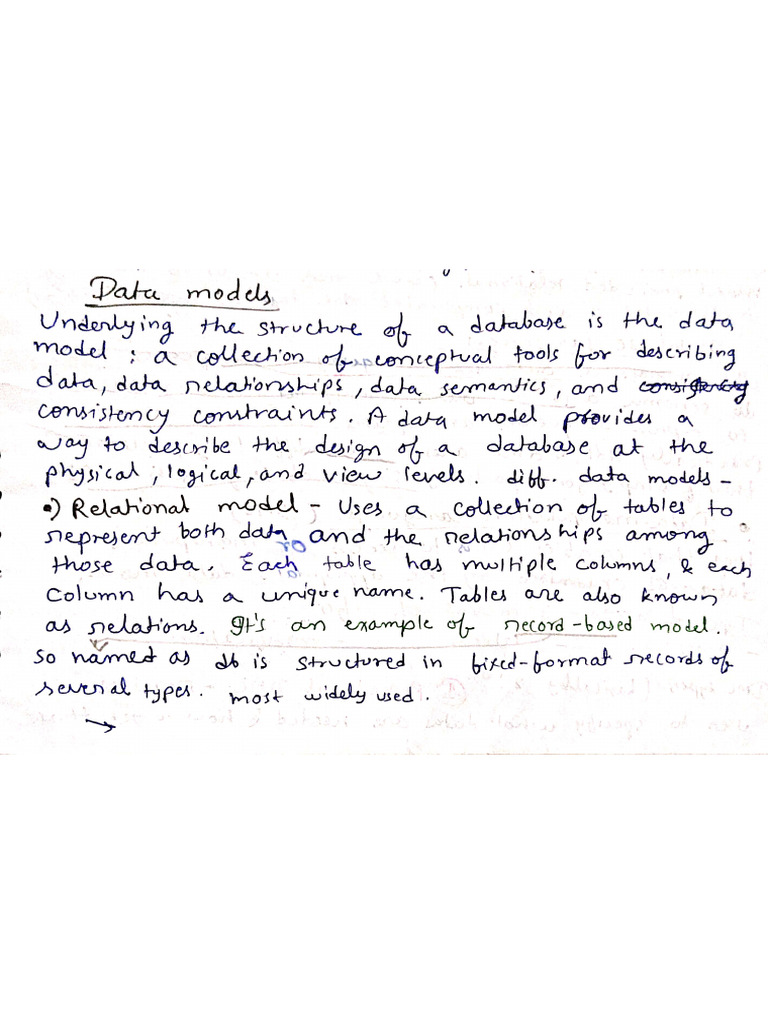 Data models
Underlying the structure of a database is the data
model : a collection of conceptual tools for describing
data, data relationships, data semantics, and consistency
consistency constraints. A data model provides a
way to describe the design of a database at the
physical, logical, and view levels. diff. data models -
•) Relational model - Uses a collection of tables to
represent both data and the relationships among
those data. Each table has multiple columns, & each
column has a unique name. Tables are also known
as relations. It's an example of record-based model.
so named as db is structured in fixed-format records of
several types. most widely used.
→